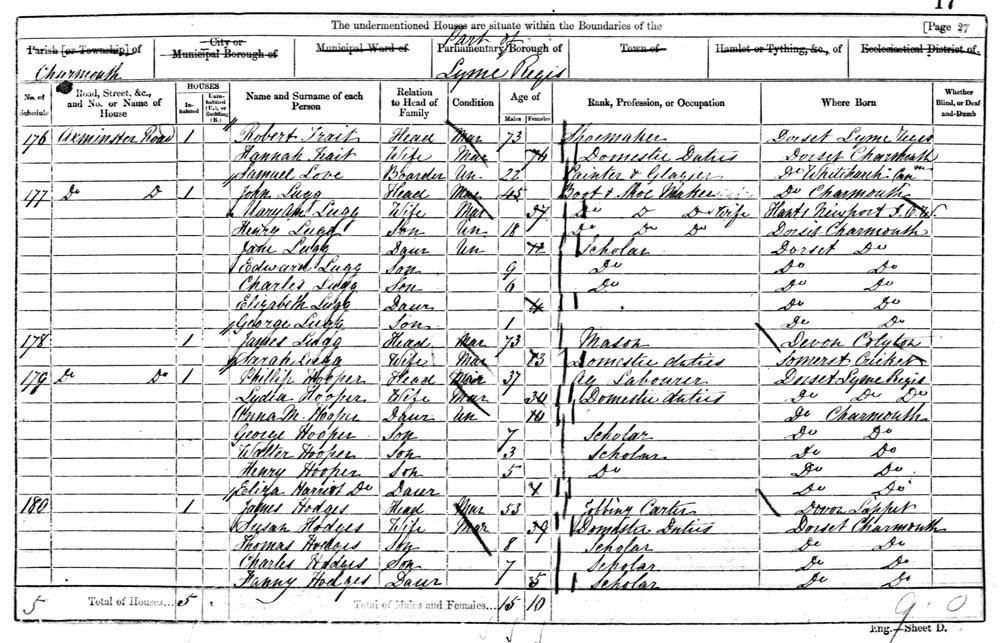 17
The undermentioned Houses are situate within the Boundaries of the [Page 27
Parish [or Township] of Charmouth City or Municipal Borough of Municipal Ward of Part of Parliamentary Borough of Lyme Regis Town of Hamlet or Tything, &c., of Ecclesiastical District of
No. of Schedule Road, Street, &c., and No. or Name of House HOUSES Inhabited Uninhabited (U.), or Building (B.) Name and Surname of each Person Relation to Head of Family Condition Age of Males Females Rank, Profession, or Occupation Where Born Whether Blind, or Deaf-and-Dumb
176 Axminster Road 1 Robert Trait Head Mar 73 Shoemaker Dorset Lyme Regis
Hannah Trait Wife Mar 74 Domestic Duties Dorset Charmouth
Samuel Love Boarder Un 22 Painter & Glazier Do Whitchurch
177 Do D 1 John Lugg Head Mar 45 Boot & Shoe Maker Do Charmouth
Mary An Lugg Wife Mar 37 Do D Do Wife Hants Newport I.O.W.
Henry Lugg Son Un 18 Do Do Do Dorset Charmouth
Jane Lugg Daur Un 12 Scholar Dorset Do
Edward Lugg Son 9 Do Do Do
Charles Lugg Son 6 Do Do Do
Elizabeth Lugg Daur 4 Do Do
George Lugg Son 1 Do Do
178 1 James Lugg Head Mar 73 Mason Devon Colyton
Sarah Lugg Wife Mar 73 Domestic duties Somerst
179 Do Do 1 Phillip Hooper Head Mar 37 Ag Labourer Dorset Lyme Regis
Lydia Hooper Wife Mar 34 Domestic duties Do Do Do
Anna M. Hooper Daur Un Do Charmouth
George Hooper Son 7 Scholar Do Do
Walter Hooper Son 3 Scholar Do Do
Henry Hooper Son 5 Do Do Do
Eliza Harriot Do Daur Do Do
180 1 James Hodges Head Mar 53 Carter Devon
Susan Hodges Wife Mar 39 Domestic Duties Dorset Charmouth
Thomas Hodges Son 8 Scholar Do Do
Charles Hodges Son 7 Scholar Do Do
Fanny Hodges Daur 5 Scholar Do Do
5 Total of Houses... 5 Total of Males and Females... 15 10
Eng.—Sheet D.